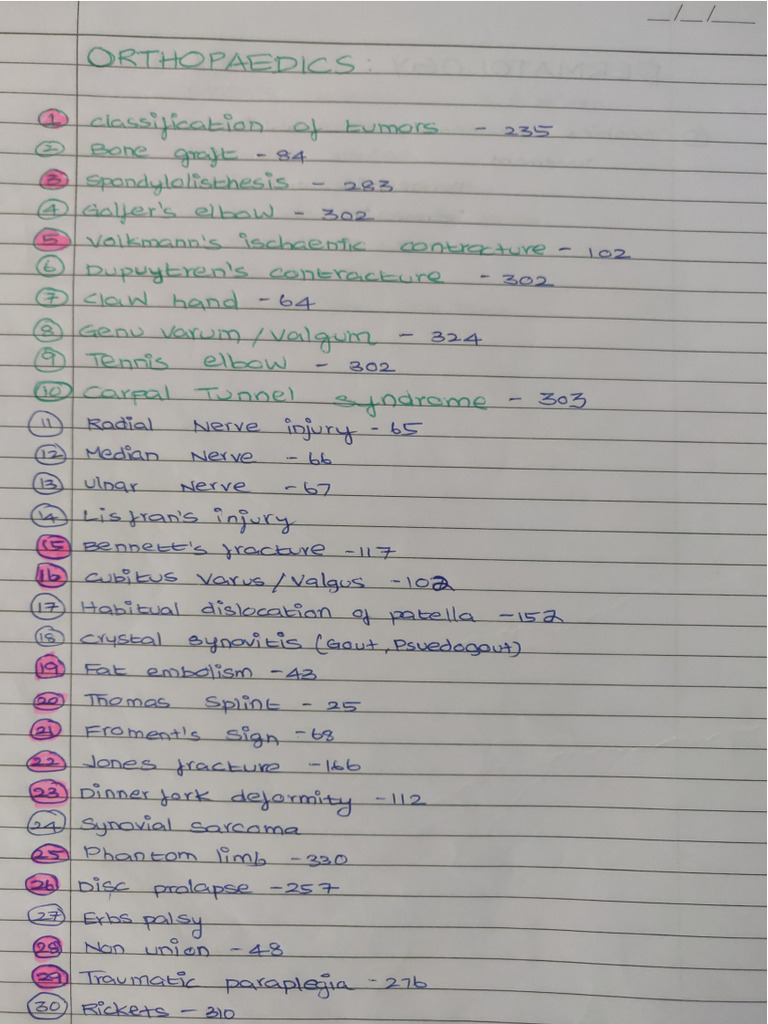 __/__/____
ORTHOPAEDICS:
1 Classification of tumors - 235
2 Bone graft - 84
3 Spondylolisthesis - 283
4 Golfer's elbow - 302
5 Volkmann's ischaemic contracture - 102
6 Dupuytren's contracture - 302
7 Claw hand - 64
8 Genu varum/valgum - 324
9 Tennis elbow - 302
10 Carpal Tunnel syndrome - 303
11 Radial Nerve injury - 65
12 Median Nerve - 66
13 Ulnar Nerve - 67
14 Lisfran's injury
15 Bennett's fracture - 117
16 Cubitus Varus/Valgus - 102
17 Habitual dislocation of patella - 152
18 Crystal synovitis (Gout, Psuedogout)
19 Fat embolism - 43
20 Thomas Splint - 25
21 Froment's sign - 68
22 Jones fracture - 166
23 Dinner fork deformity - 112
24 Synovial sarcoma
25 Phantom limb - 330
26 Disc prolapse - 257
27 Erbs palsy
28 Non union - 48
29 Traumatic paraplegia - 276
30 Rickets - 310